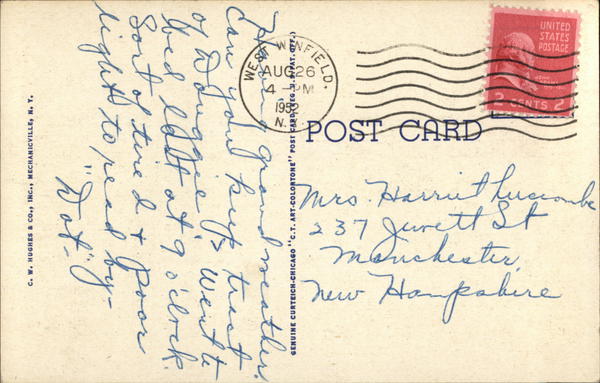 Having grand weather.
Can you
of Douggie's Went to
bed last at 9 o'clock.
Sort of tired & poor
light to read by -
"Dot" -
C. W. HUGHES & CO., INC., MECHANICVILLE, N. Y.
GENUINE CURTEICH-CHICAGO "C.T. ART-COLORTONE" POST CARD (REG. U.S. PAT. OFF.)
WEST WINFIELD,
AUG 26
4 - PM
N.Y.
UNITED
STATES
POSTAGE
JOHN ADAMS
2 CENTS 2
POST CARD
Mrs. Harriet Luscombe
237 Jewett St
Manchester
New Hampshire